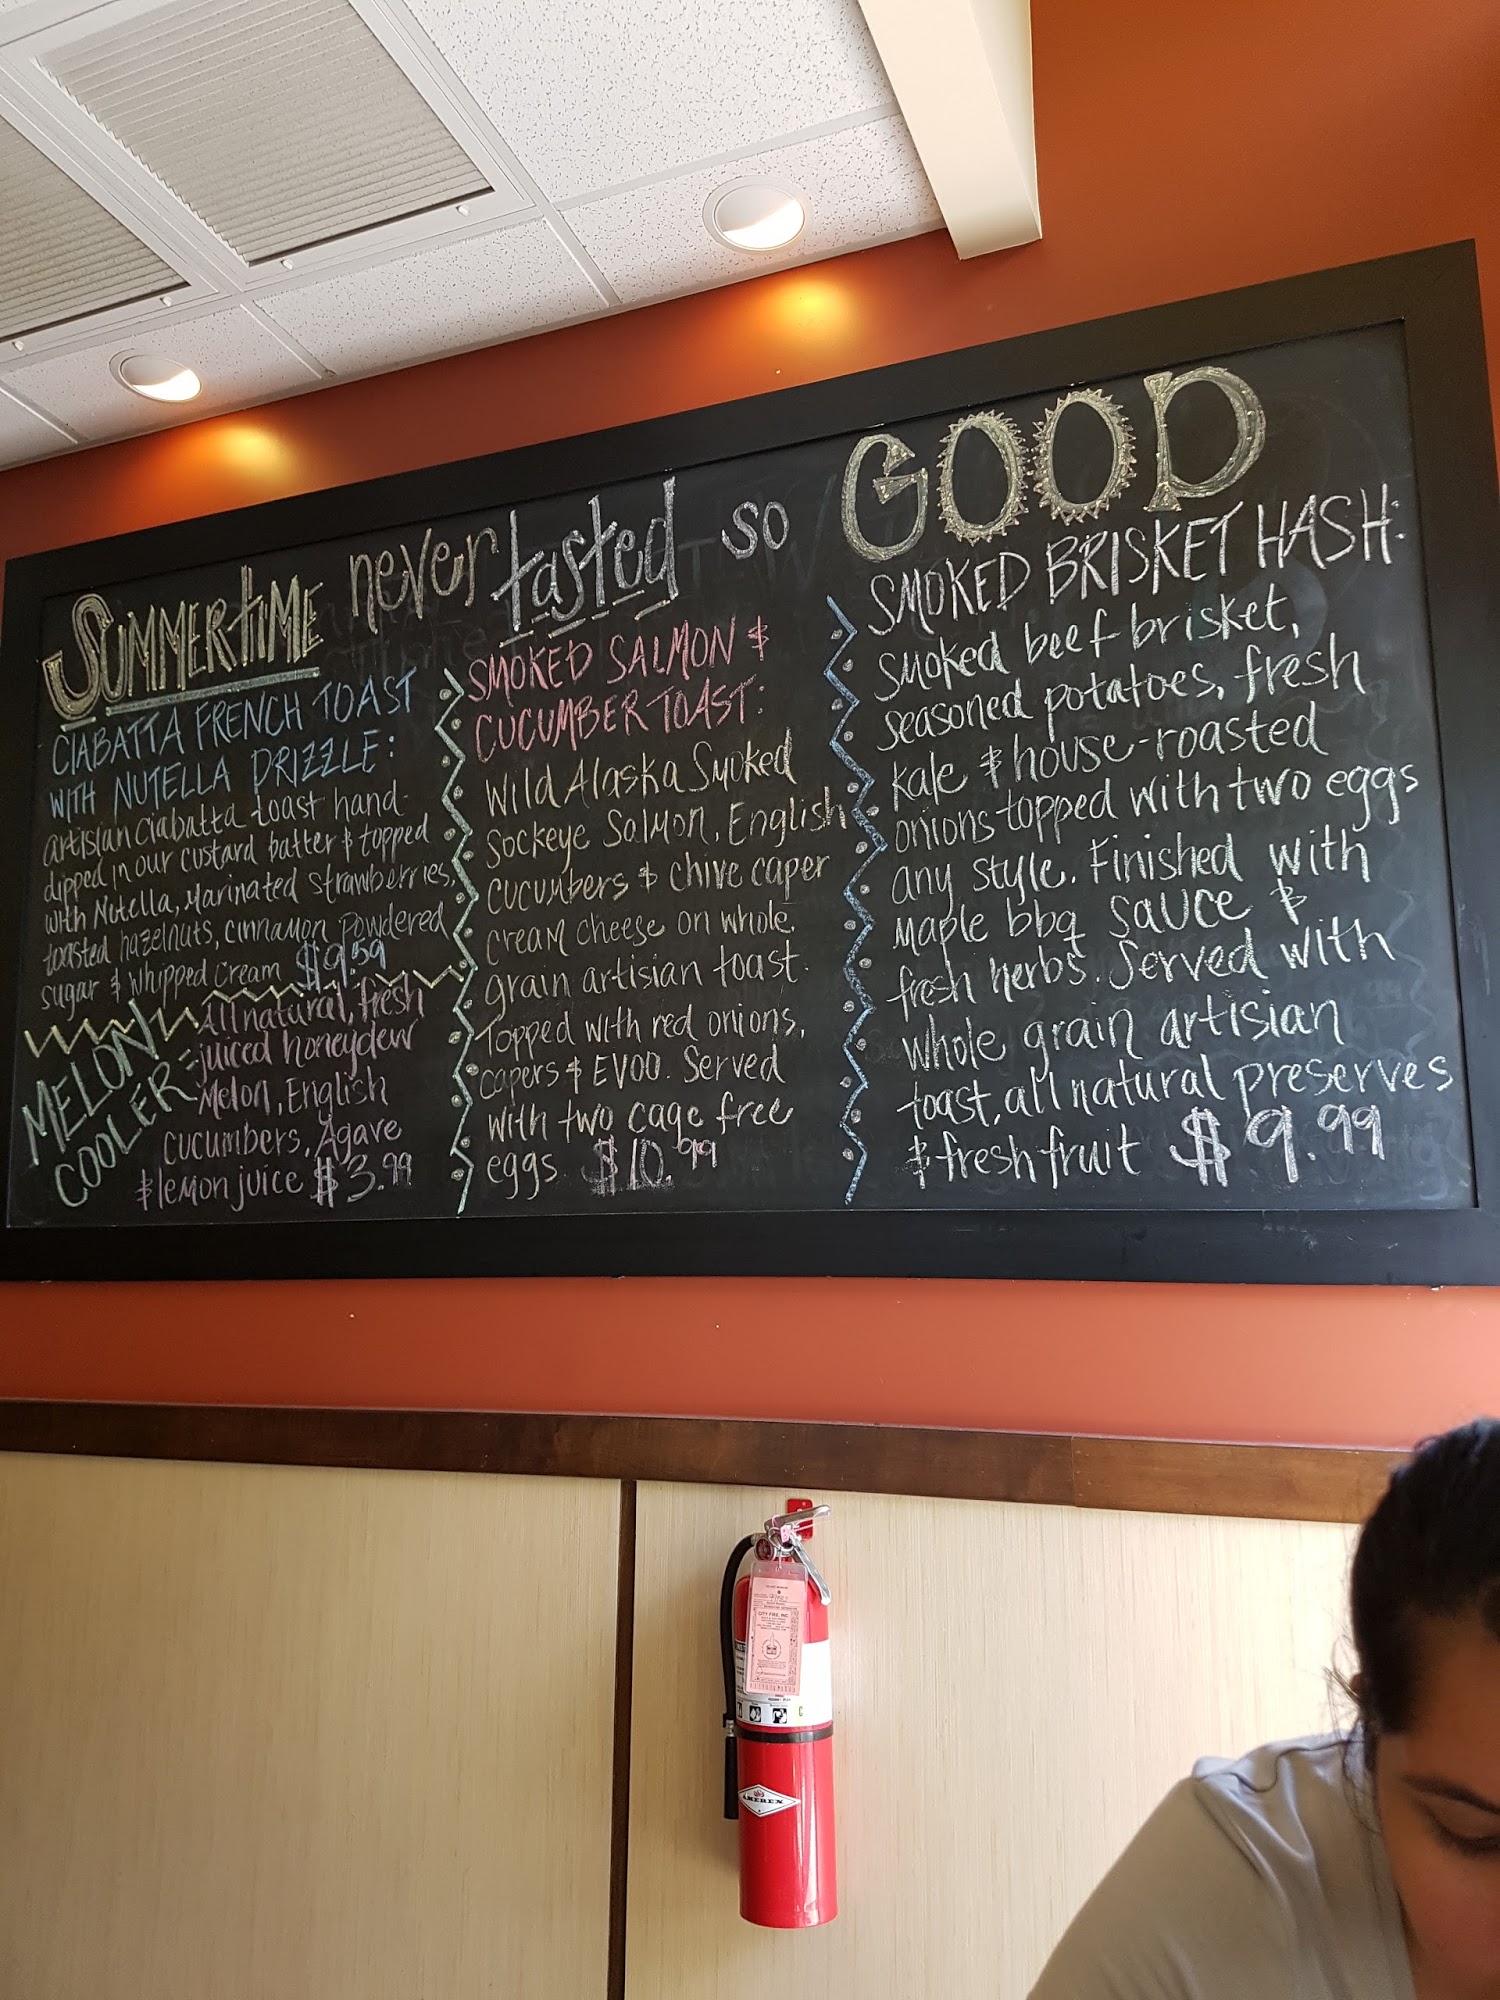 SUMMERTIME never tasted so GOOD
CIABATTA FRENCH TOAST
WITH NUTELLA DRIZZLE:
artisian Ciabatta toast hand-
dipped in our custard batter & topped
with Nutella, Marinated strawberries,
toasted hazelnuts, cinnamon powdered
sugar & whipped cream $9.59
MELON
COOLER:
All natural, fresh
juiced honeydew
Melon, English
cucumbers, Agave
& lemon juice $3.99
SMOKED SALMON &
CUCUMBER TOAST:
Wild Alaska Smoked
Sockeye Salmon, English
cucumbers & chive caper
cream cheese on whole
grain artisian toast.
Topped with red onions,
capers & EVOO. Served
with two cage free
eggs $10.99
SMOKED BRISKET HASH:
smoked beef brisket,
seasoned potatoes, fresh
kale & house-roasted
onions topped with two eggs
any style. Finished with
Maple bbq sauce &
fresh herbs. Served with
whole grain artisian
toast, all natural preserves
& fresh fruit $9.99
CITY FIRE, INC.
AMEREX